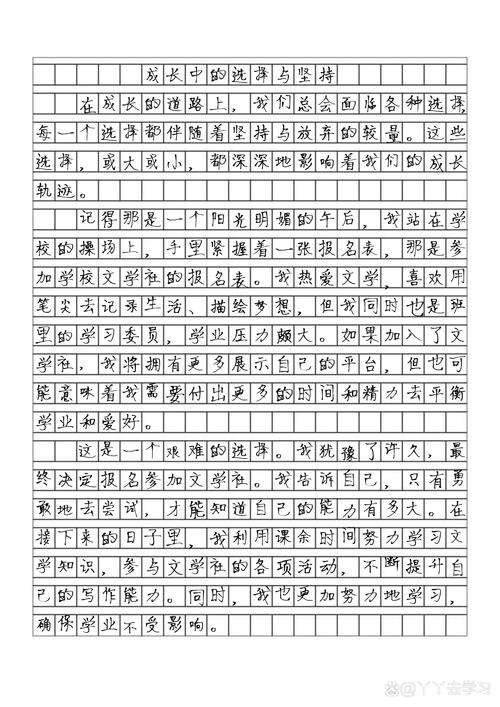 成长中的选择与坚持
在成长的道路上，我们总会面临各种选择，
每一个选择都伴随着坚持与放弃的较量。这些
选择，或大或小，都深深地影响着我们的成长
轨迹。
记得那是一个阳光明媚的午后，我站在学
校的操场上，手里紧握着一张报名表，那是参
加学校文学社的报名表。我热爱文学，喜欢用
笔尖去记录生活、描绘梦想，但我同时也是班
里的学习委员，学业压力颇大。如果加入了文
学社，我将拥有更多展示自己的平台，但也可
能意味着我需要付出更多的时间和精力去平衡
学业和爱好。
这是一个艰难的选择。我犹豫了许久，最
终决定报名参加文学社。我告诉自己，只有勇
敢地去尝试，才能知道自己的能力有多大。在
接下来的日子里，我利用课余时间努力学习文
学知识，参与文学社的各项活动，不断提升自
己的写作能力。同时，我也更加努力地学习，
确保学业不受影响。
@丫丫去学习